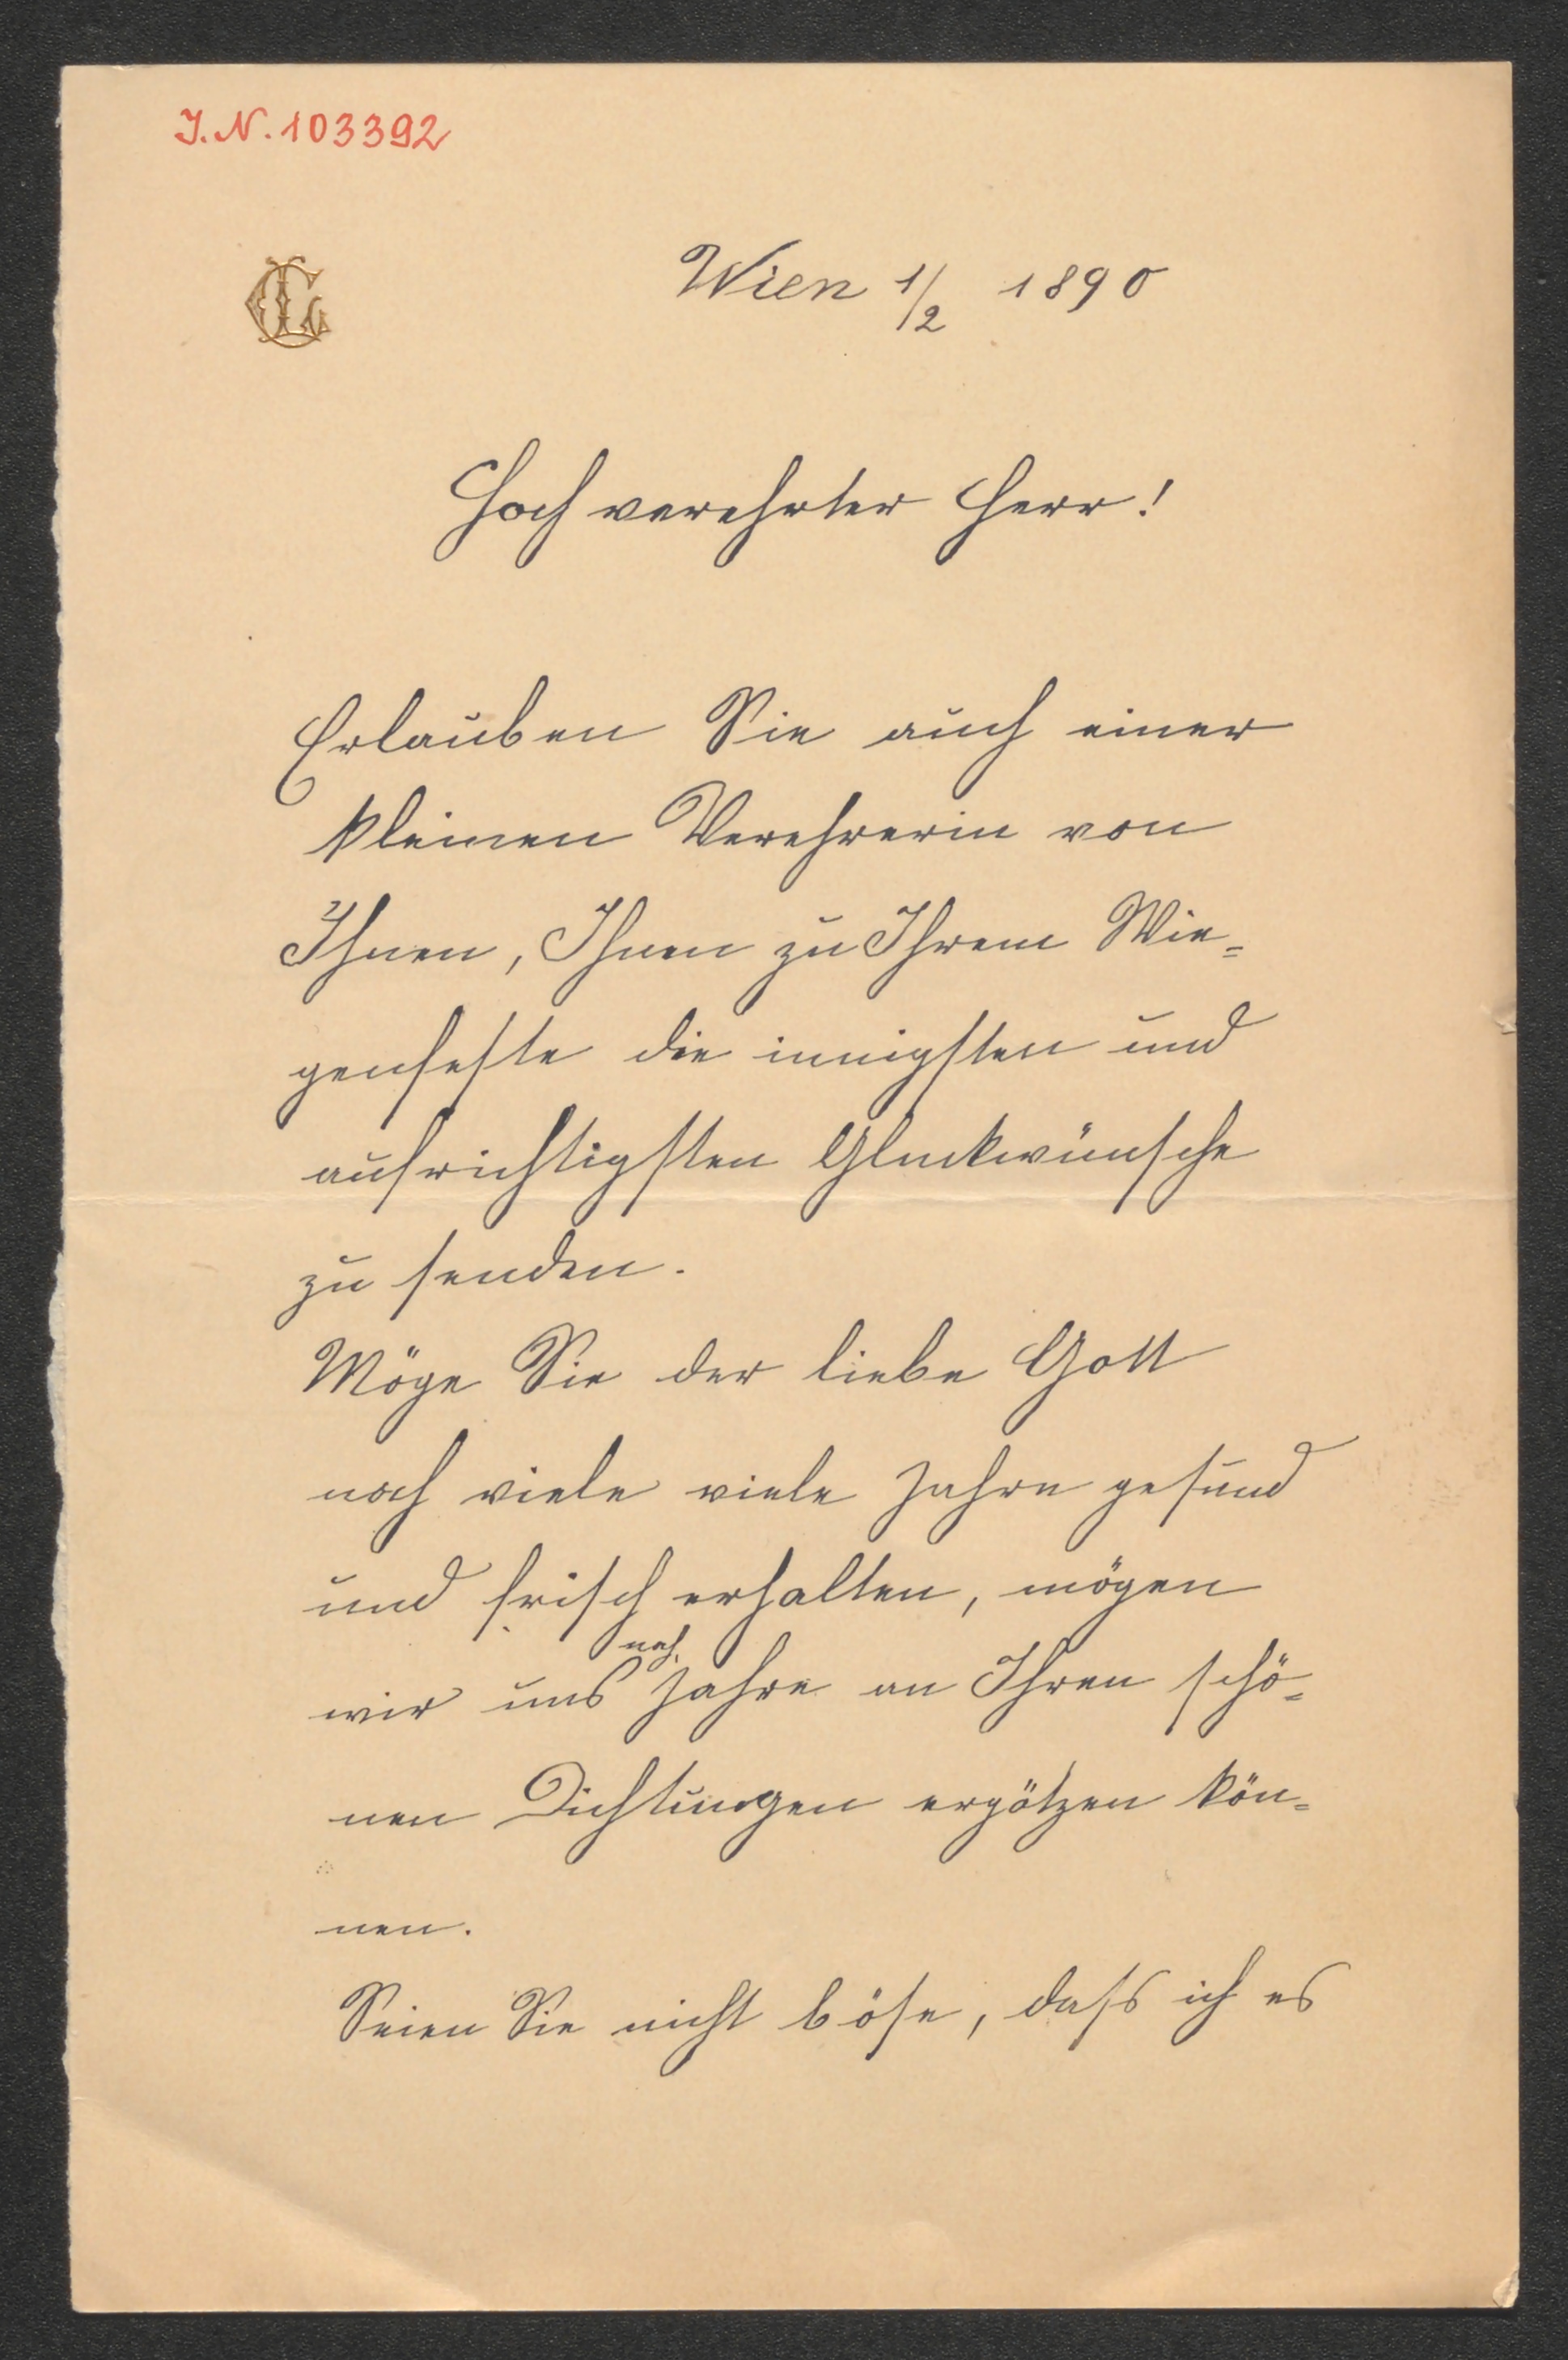 J.N. 103392
Wien 1/2 1890
Hoch verehrter Herr!
Erlauben Sie auch einer
kleinen Verehrerin von
Ihnen, Ihnen zu Ihrem Wie=
genfeste die innigsten und
aufrichtigsten Glückwünsche
zu senden.
Möge Sie der liebe Gott
noch viele viele Jahre gesund
und frisch erhalten, mögen
noch
wir uns Jahre an Ihren schö=
nen Dichtungen ergötzen kön=
nen.
Seien Sie nicht böse, dass ich es